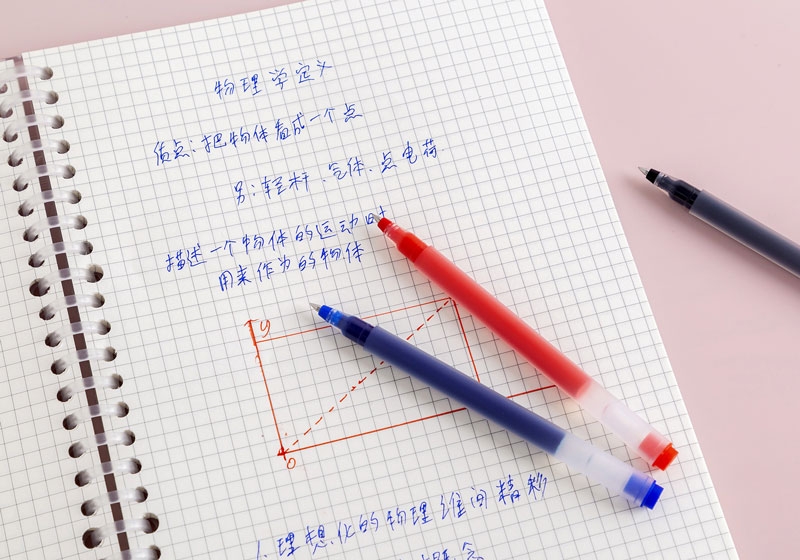 物理学定义
质点：把物体看成一个点
另：轻杆、气体、点电荷
描述一个物体的运动时
用来作为的物体
y
o
1.理想化的物理 精妙
念